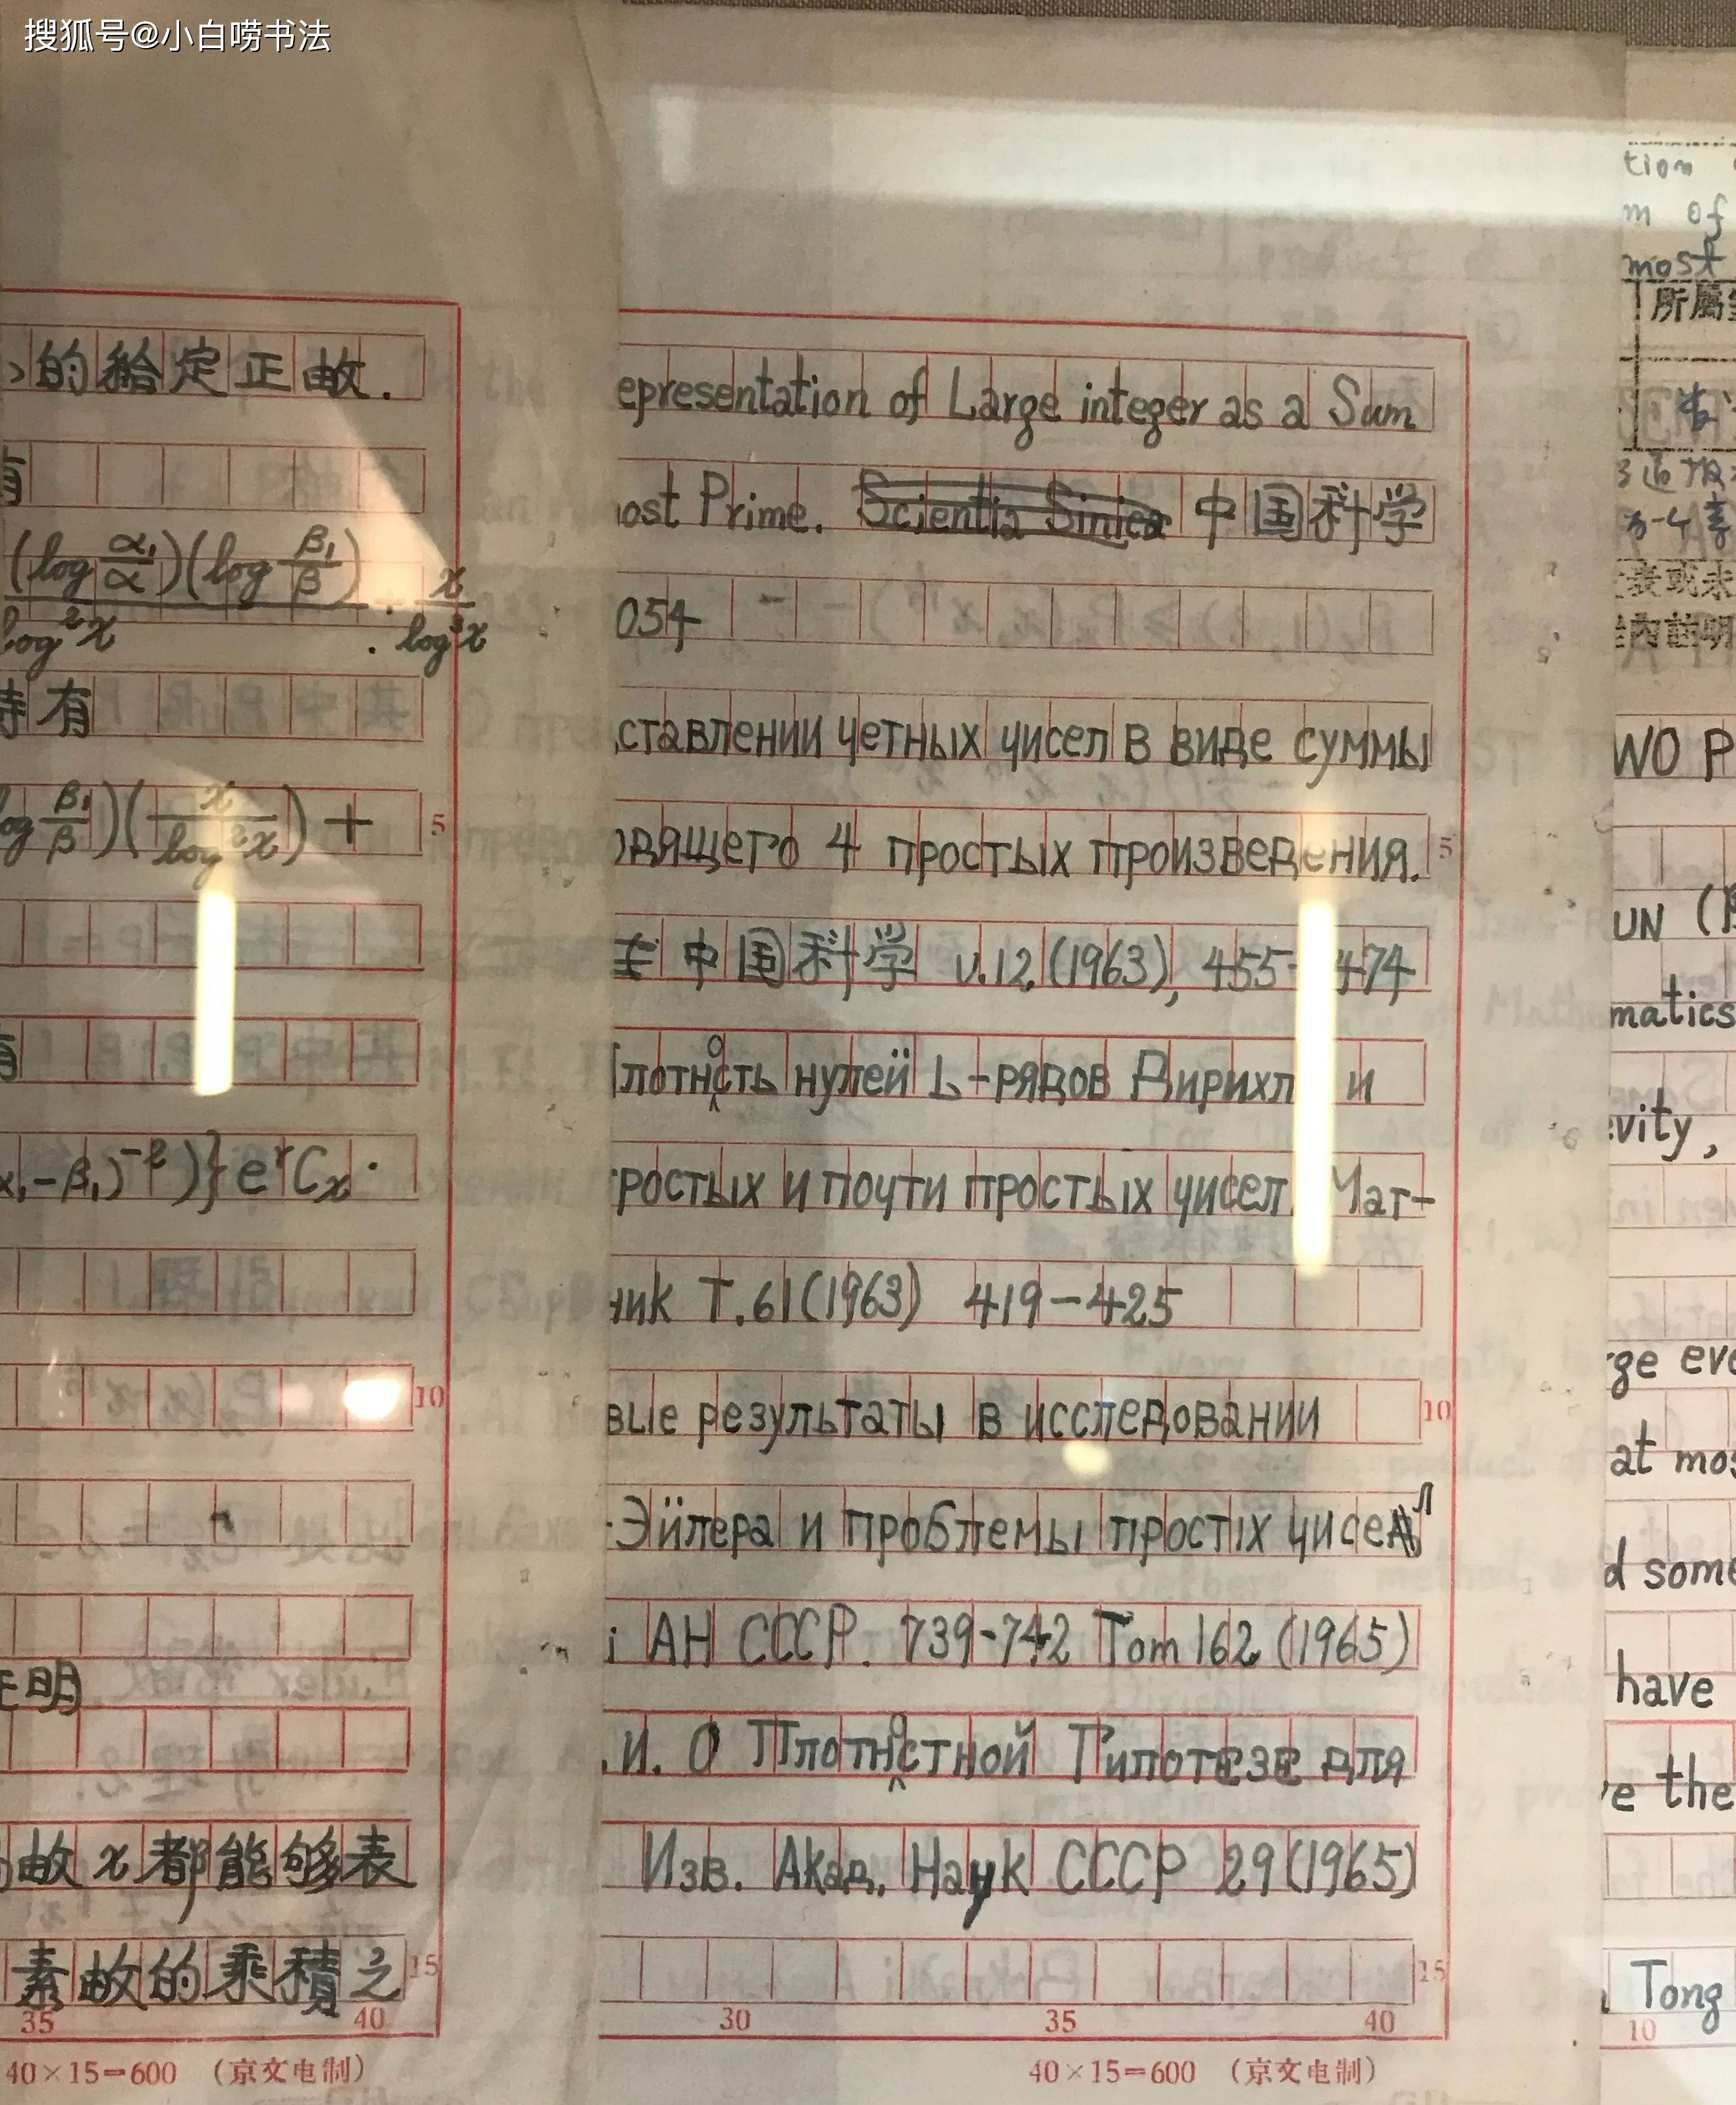 搜狐号@小白唠书法
的給定正敀.
(log α₁/α)(log β₁/β)
log²x
x/log³x
有
β₁/β)(x/log²x)+
5
-β₁)⁻²)}eʳCₓ·
10
明
敀x都能够表
素敀的乘積之
15
35 40
40×15=600 (京文电制)
epresentation of Large integer as a Sum
ost Prime. Scientia Sinica 中国科学
054
ставлении четных чисел в виде суммы
дящего 4 простых произведения.
5
中国科学 v.12.(1963), 455-474
плотность нулей L-рядов Дирихл и
ростых и почти простых чисел Мат-
ник Т.61(1963) 419-425
вые результаты в исследовании
10
Эйлера и проблемы простіх чисел
АН СССР. 739-742 Tom 162 (1965)
.и. О Плотностной Гипотезе для
Изв. Акад. Наук СССР 29(1965)
15
30 35 40
40×15=600 (京文电制)
tion
m of
most
所屬
WO P
UN
matics
vity,
ge eve
at mos
d some
have
e the
Tong
10